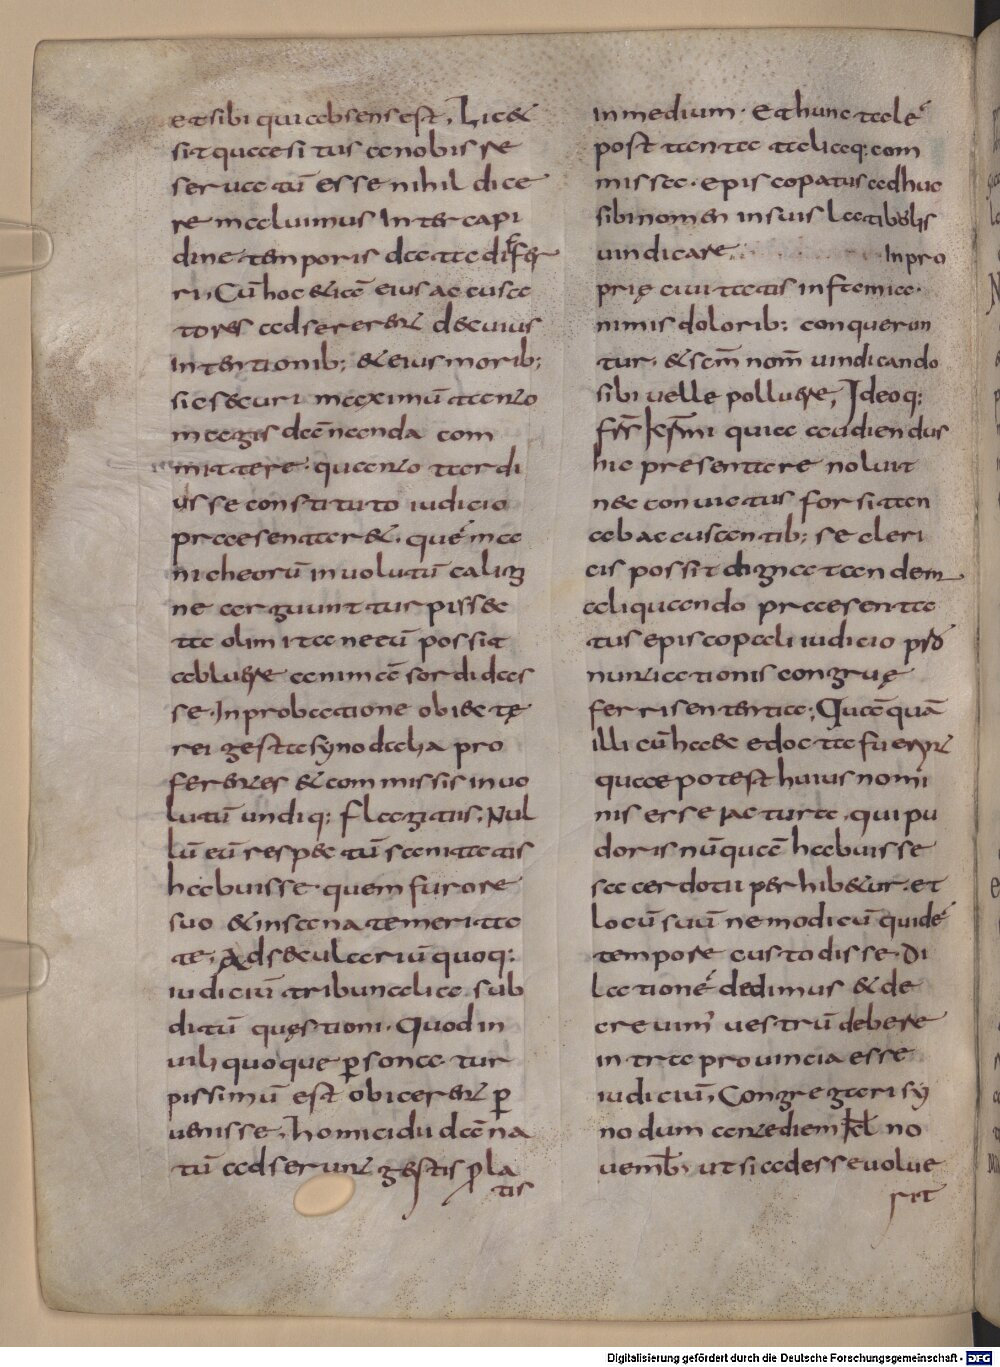 et sibi qui absens est, Lic&
sit quaesitus a nobis re
serua tū esse nihil dice
re maluimus Inter capi
dine temporis data differ
ri, Cū hoc &iā eius accusa
tores adsererent decuius
intentionib; & eius morib;
sic securi maximū atento
magis dānanda com
mittere quanto tardi
us se constituto iudicio
praesentar&. quē ma
nicheorū inuolutū calig
ne arguunt turpis sec
ta olim ita ne eū possit
abluere animā sordidas
se. In probatione obiectę
rei gesta synodalia pro
ferentes & commissis inuo
lutū undiq; flagitiis, Nul
lū eū respectū sanitatis
habuisse quem furore
suo & insana temerita
te, Ad seculariū quoq;
iudiciū tribunalia sub
ditū quęstioni. Quod in
uili quoque psona tur
pissimū est obicerent p
uenisse, homicidii dāna
tū adserunt gestis pla
tis
in medium. Et hunc talē
post tanta taliaq; com
missa. episcopatus adhuc
sibi nomen in suis latibulis
uindicare. In pro
prię ciuitatis infamia.
nimis dolorib; conquerun
tur. & scm̄ nom̄ uindicando
sibi uelle polluere, Ideoq;
fr̄r k̄smi quia audiendus
hic presentare noluit
nec conuictus forsitan
ab accusantib; se cleri
cis possit digna tandem
aliquando praesenta
tus episcopali iudicio p̄sō
nuntiationis congruę
ferri sententia; Quāquā
illi cū haec edocta fuerint
quae potest huius nomi
nis esse iactura. qui pu
doris nūquā habuisse
sacerdotii perhib&ur. et
locū suū ne modicū quidē
tempore custodisse. Di
lationē dedimus & de
creuim' uestrū debere
intra prouincia esse
iudiciū, Congregari sy
nodum ante diem kl no
uemb. ut si adesse uolue
rit
Digitalisierung gefördert durch die Deutsche Forschungsgemeinschaft - DFG